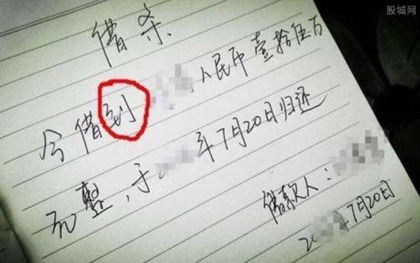 股城网
借条
今借到 人民币壹拾伍万
元整,于 年7月20日归还
借款人:
2 年7月20日